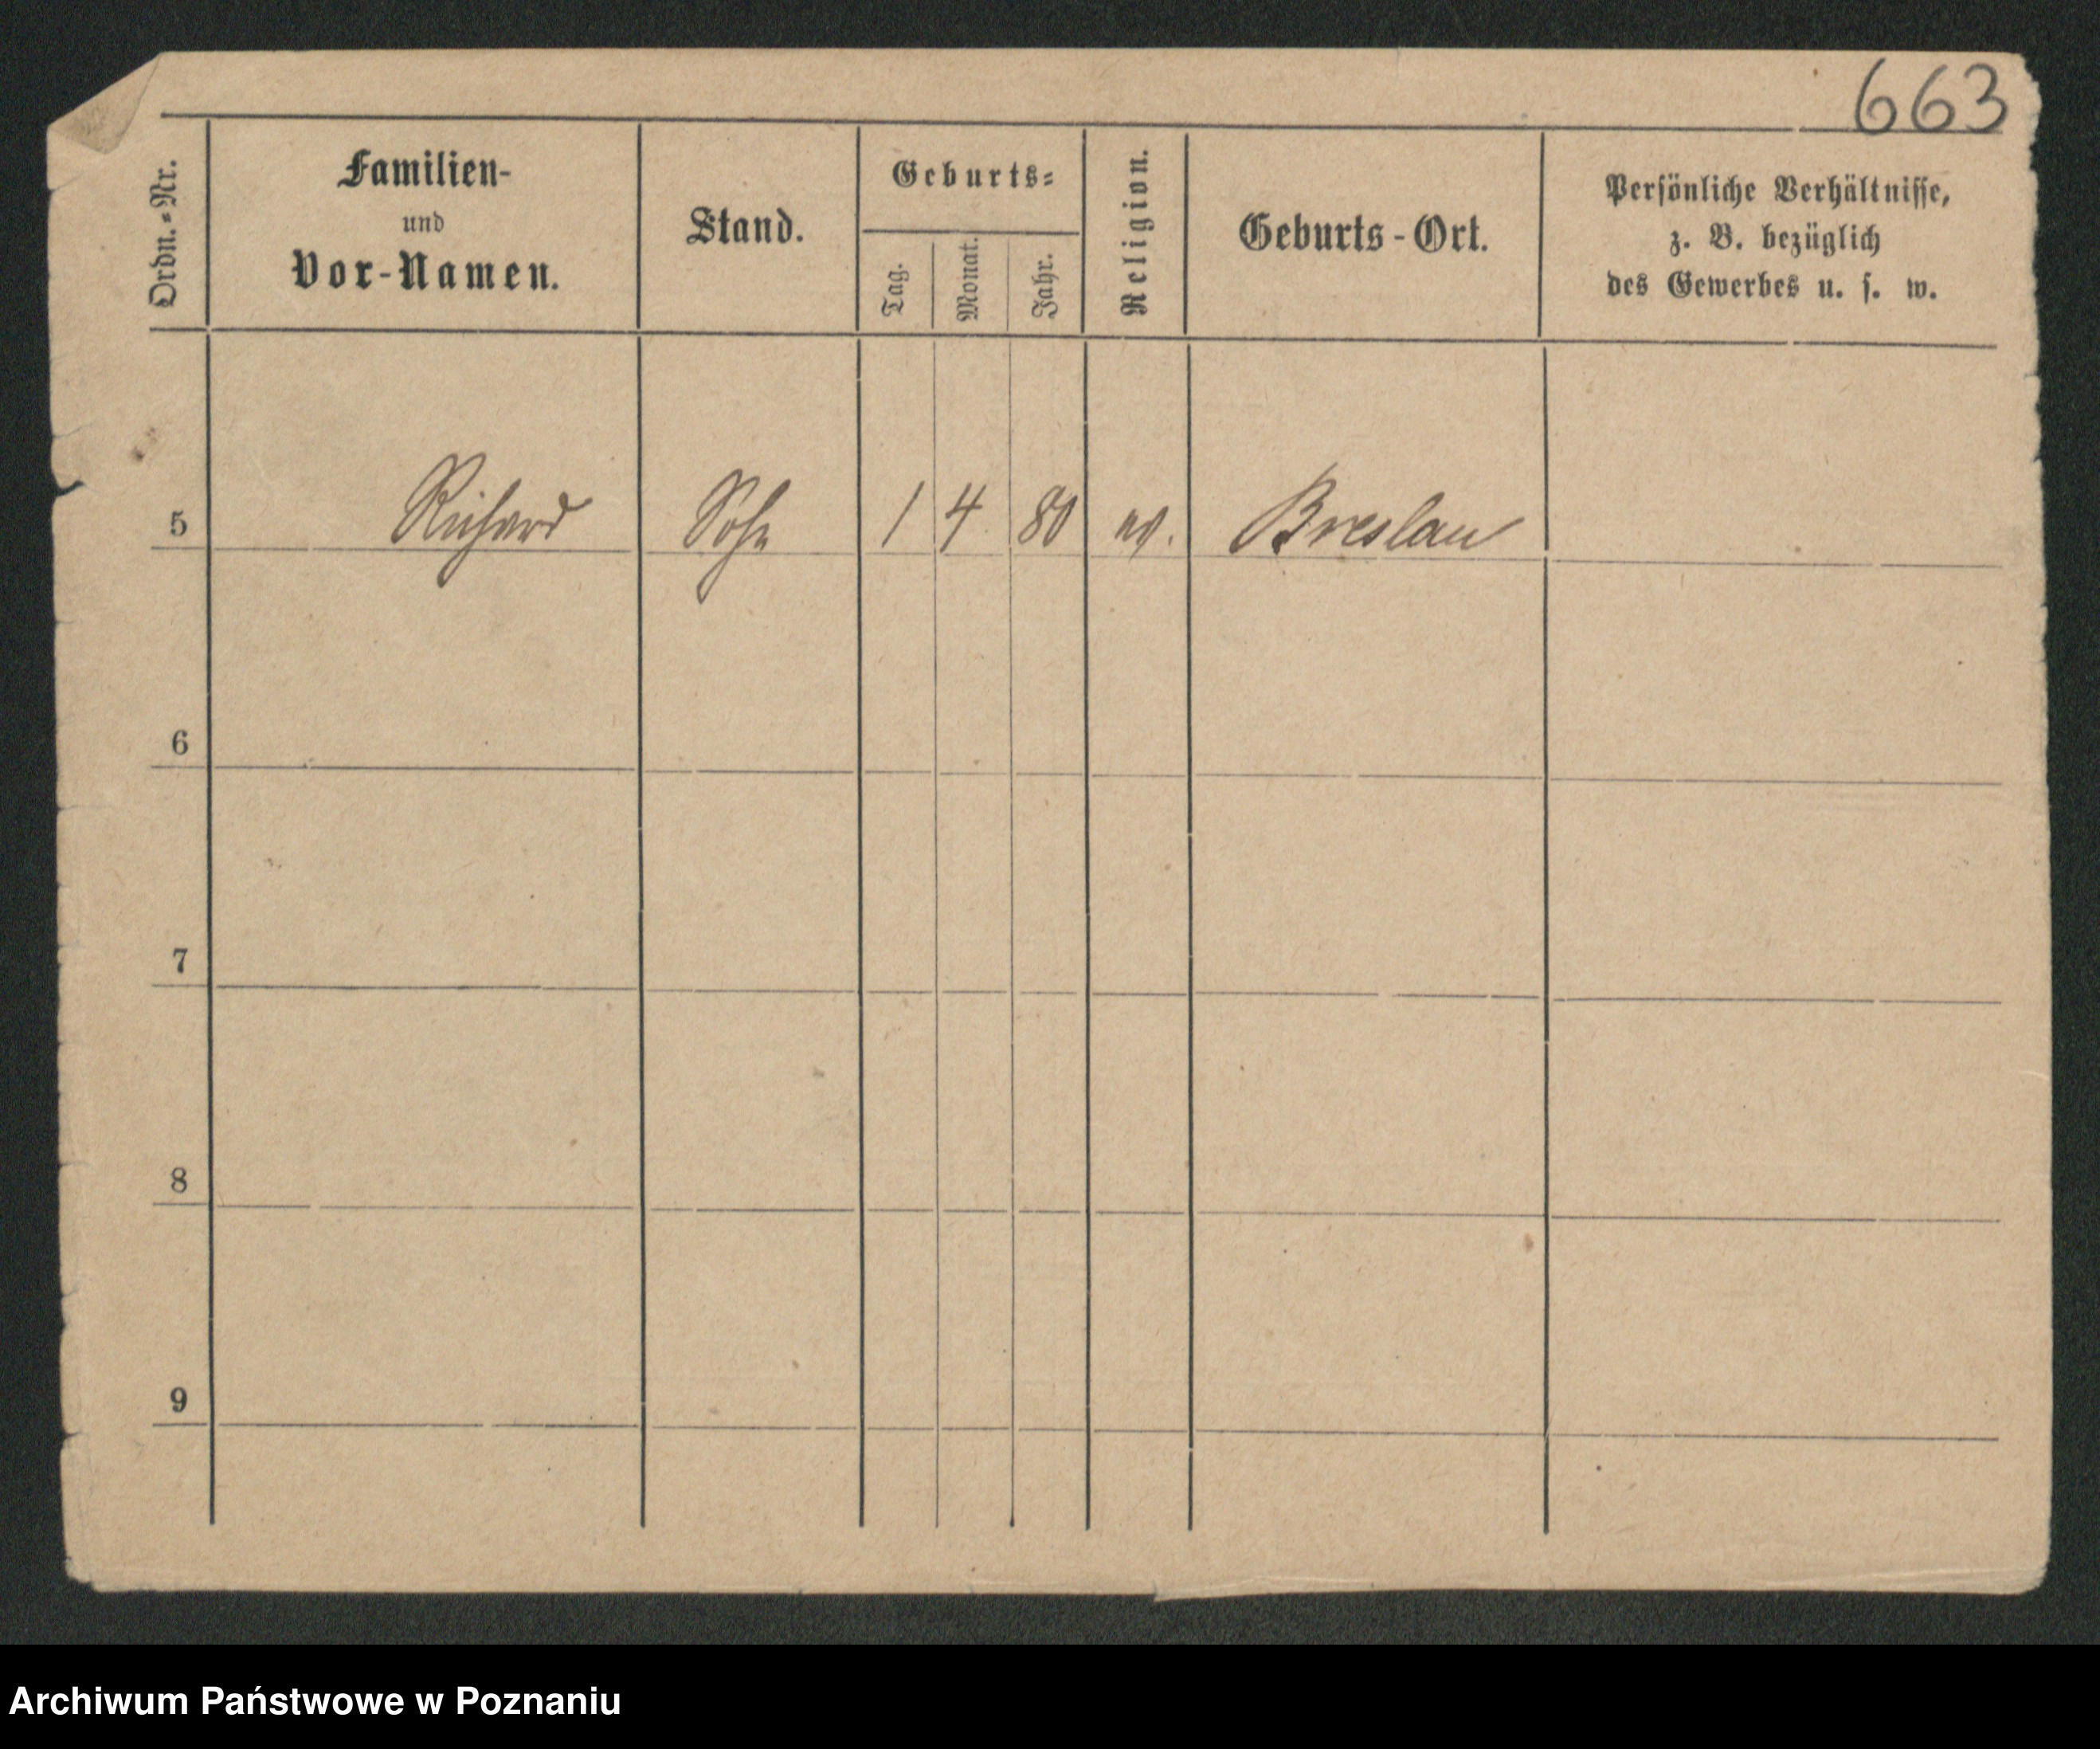 663
Ordn.-Nr.
Familien-
und
Vor-Namen.
Stand.
Geburts-
Tag.
Monat.
Jahr.
Religion.
Geburts-Ort.
Persönliche Verhältnisse,
z. B. bezüglich
des Gewerbes u. s. w.
5 Richard Sohn 1 4 80 ev. Breslau
6
7
8
9
Archiwum Państwowe w Poznaniu